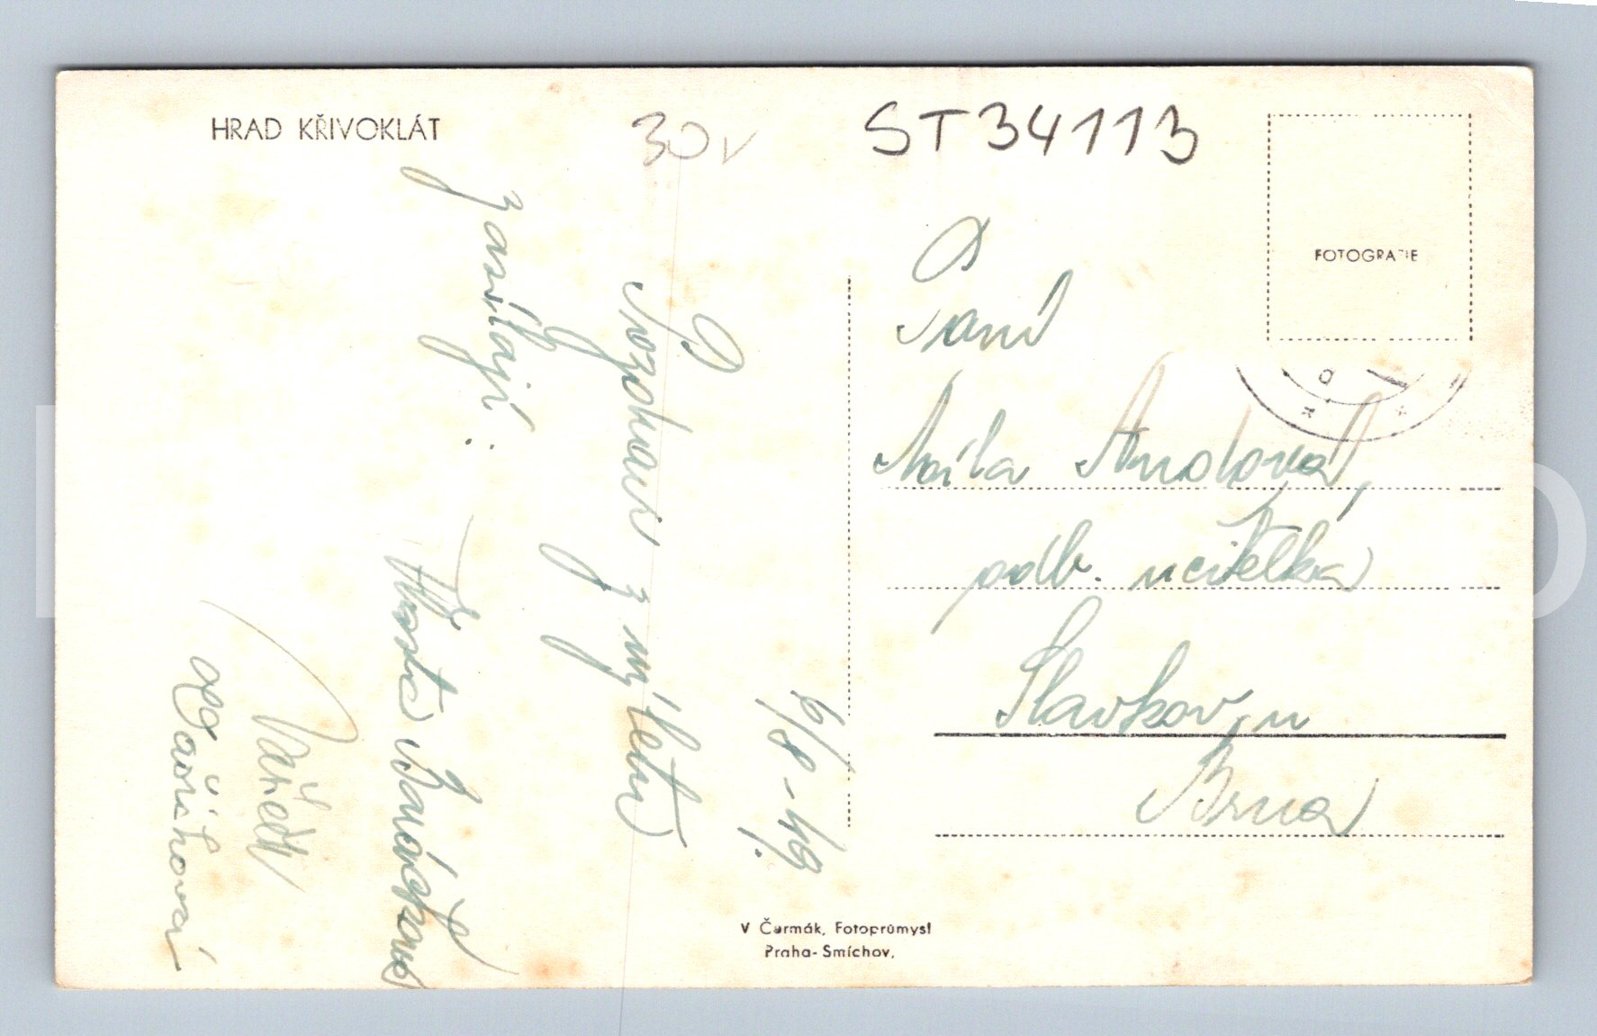 HRAD KŘIVOKLÁT
30v
ST34113
FOTOGRAFIE
6/8-49.
Pozdrav z výletu
zasílají:
Vařečk
Paní
Míla
odb. učitelka
Slavkov u
Brna
V Čermák, Fotoprůmysl
Praha-Smíchov.